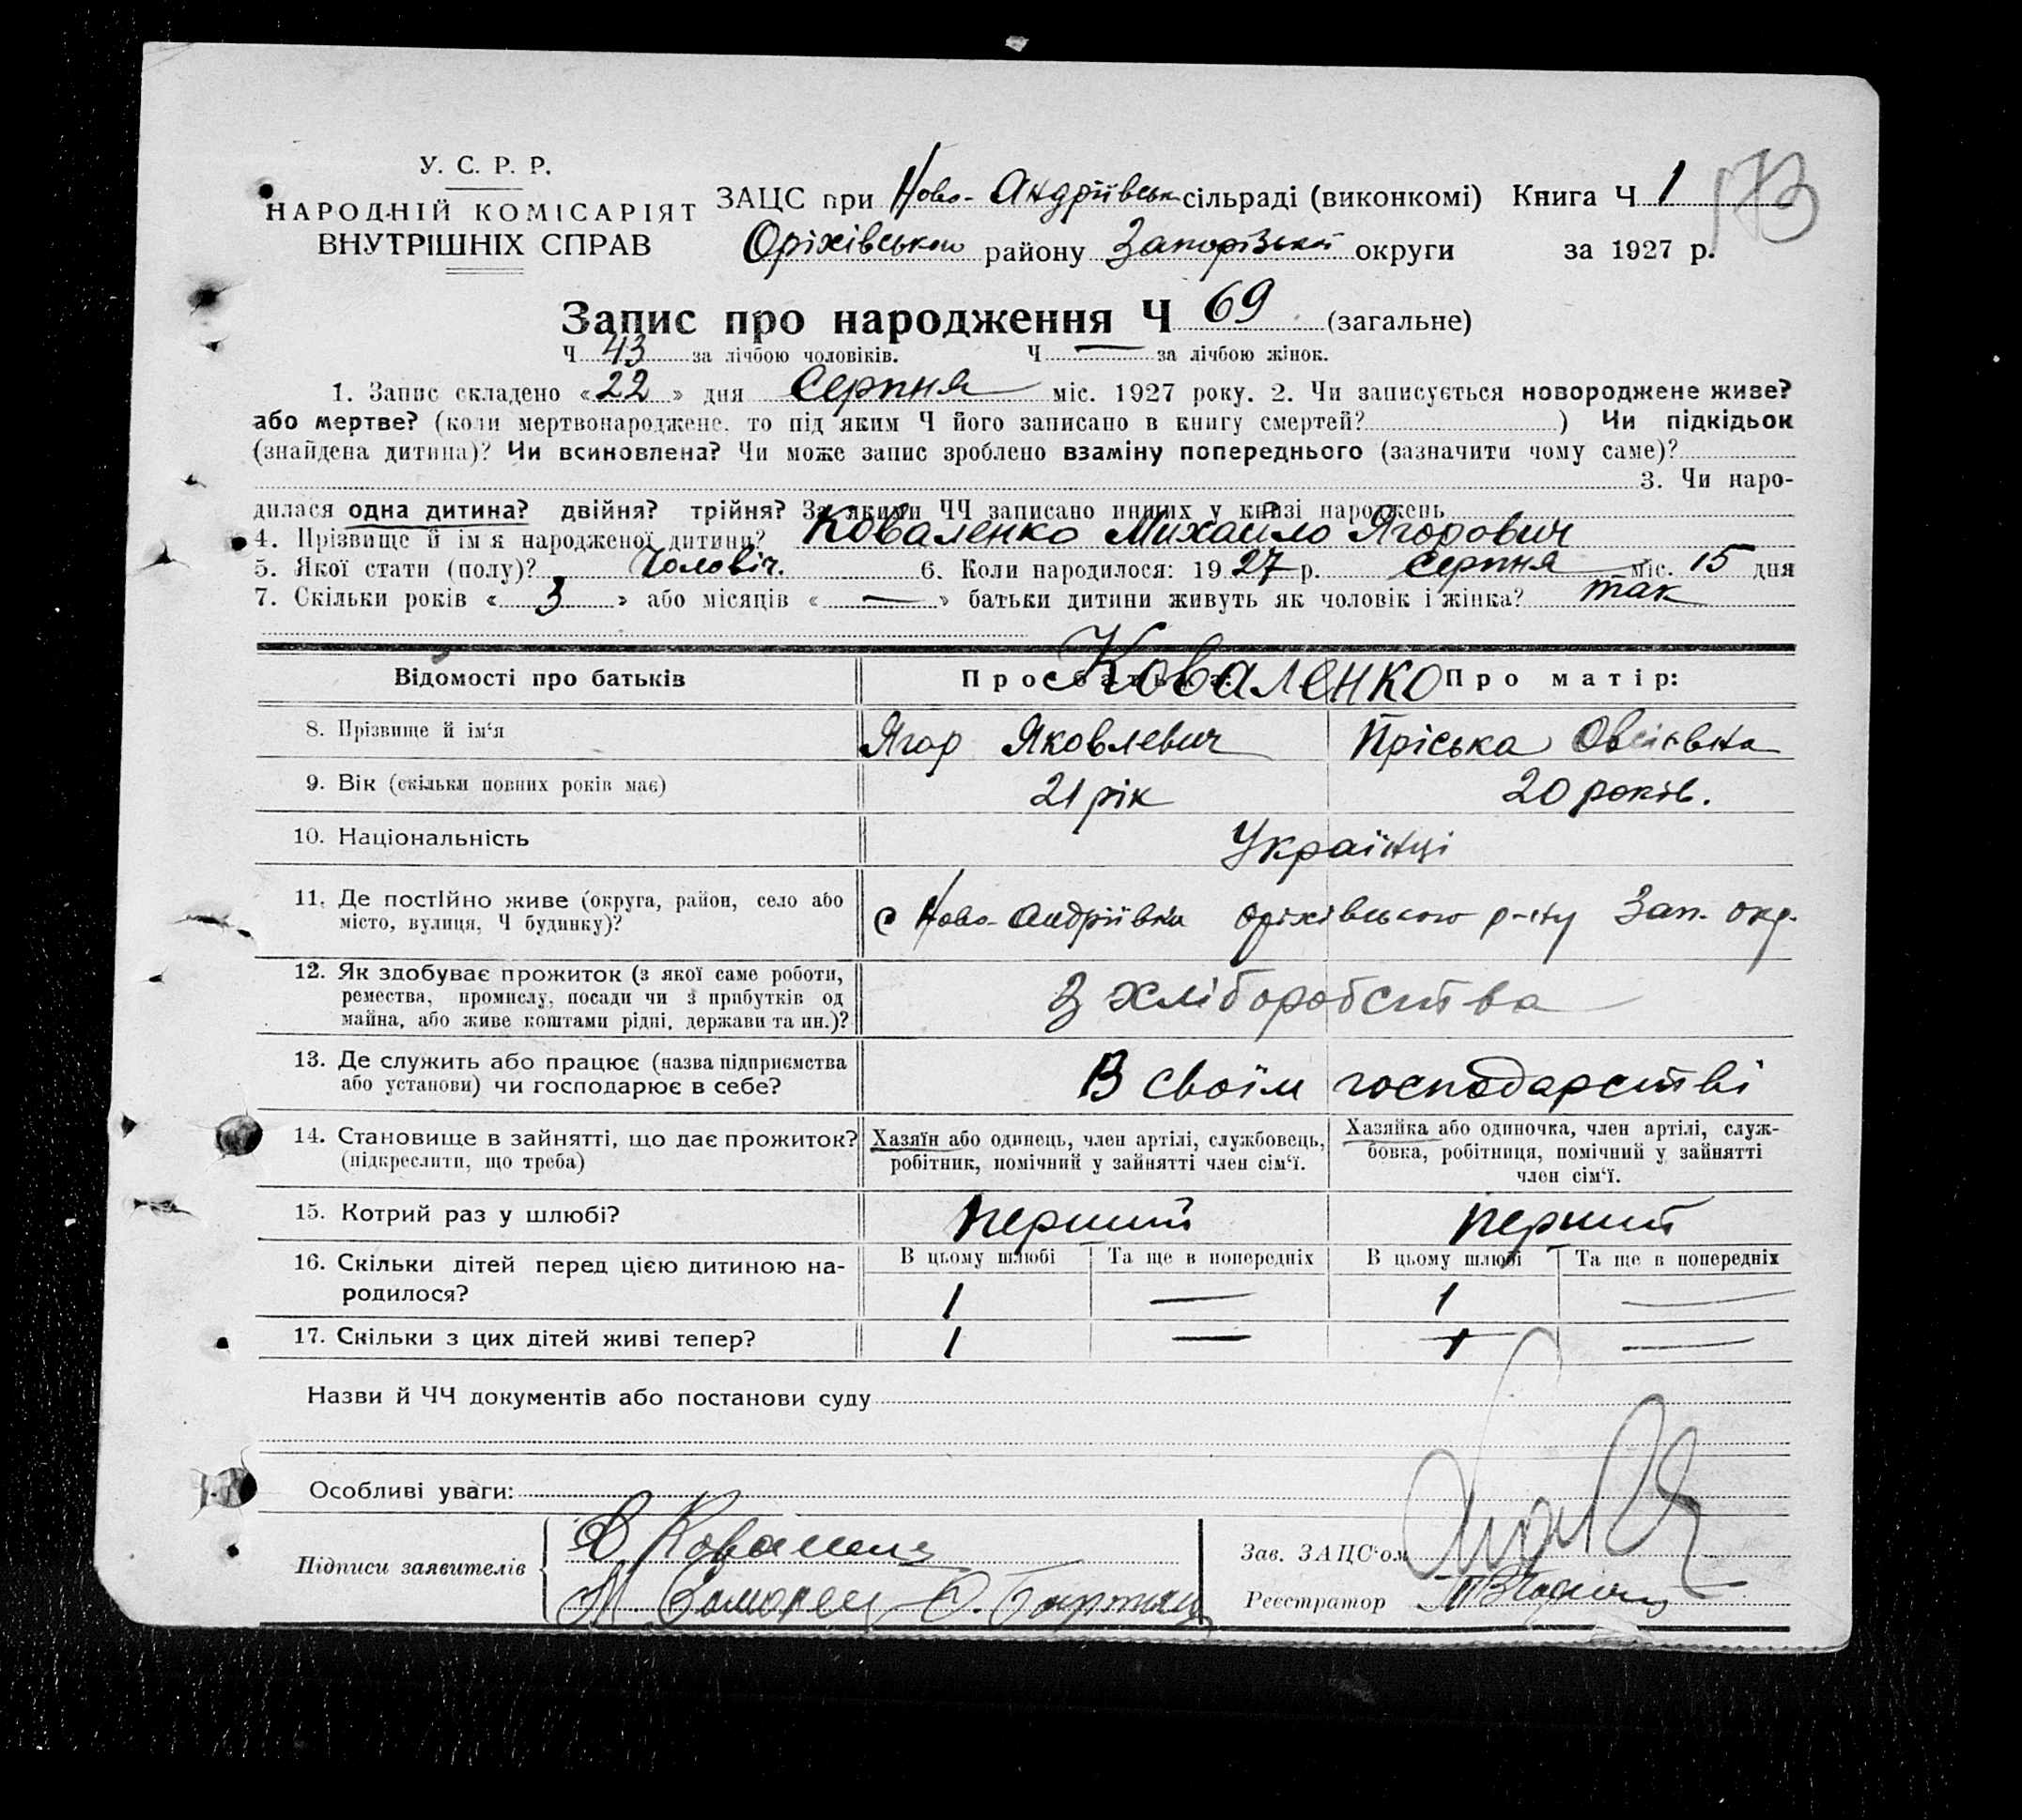 У. С. Р. Р.
НАРОДНІЙ КОМІСАРІЯТ
ВНУТРІШНІХ СПРАВ
ЗАЦС при Ново-Андріївськ сільраді (виконкомі) Книга Ч 1
173
Оріхівського району Запорізької округи за 1927 р.
Запис про народження Ч 69 (загальне)
Ч 43 за лічбою чоловіків. Ч — за лічбою жінок.
1. Запис складено «22» дня Серпня міс. 1927 року. 2. Чи записується новороджене живе?
або мертве? (коли мертвонароджене, то під яким Ч його записано в книгу смертей? ) Чи підкідьок
(знайдена дитина)? Чи всиновлена? Чи може запис зроблено взаміну попереднього (зазначити чому саме)?
3. Чи наро-
дилася одна дитина? двійня? трійня? За якими ЧЧ записано инших у книзі народжень
4. Прізвище й ім'я народженої дитини? Коваленко Михайло Ягорович
5. Якої стати (полу)? Чоловіч. 6. Коли народилося: 1927 р. Серпня міс. 15 дня
7. Скільки років «3» або місяців «—» батьки дитини живуть як чоловік і жінка? так
Відомості про батьків Про батька: Про матір:
Коваленко
8. Прізвище й ім'я Ягор Яковлевич Пріська Овсіївна
9. Вік (скільки повних років має) 21 рік 20 років.
10. Національність Українці
11. Де постійно живе (округа, район, село або
місто, вулиця, Ч будинку)? с Ново-Андріївка Оріхівського р-ну Зап. окр.
12. Як здобуває прожиток (з якої саме роботи,
ремества, промислу, посади чи з прибутків од
майна, або живе коштами рідні, держави та ин.)? З хліборобства
13. Де служить або працює (назва підприємства
або установи) чи господарює в себе? В своїм господарстві
14. Становище в зайнятті, що дає прожиток?
(підкреслити, що треба)
Хазяїн або одинець, член артілі, службовець,
робітник, помічний у зайнятті член сім'ї.
Хазяйка або одиночка, член артілі, служ-
бовка, робітниця, помічний у зайнятті
член сім'ї.
15. Котрий раз у шлюбі? перший перший
16. Скільки дітей перед цією дитиною на-
родилося?
В цьому шлюбі Та ще в попередніх В цьому шлюбі Та ще в попередніх
1 — 1 —
17. Скільки з цих дітей живі тепер? 1 — 1 —
Назви й ЧЧ документів або постанови суду
Особливі уваги:
Підписи заявителів
Зав. ЗАЦС'ом
Реєстратор